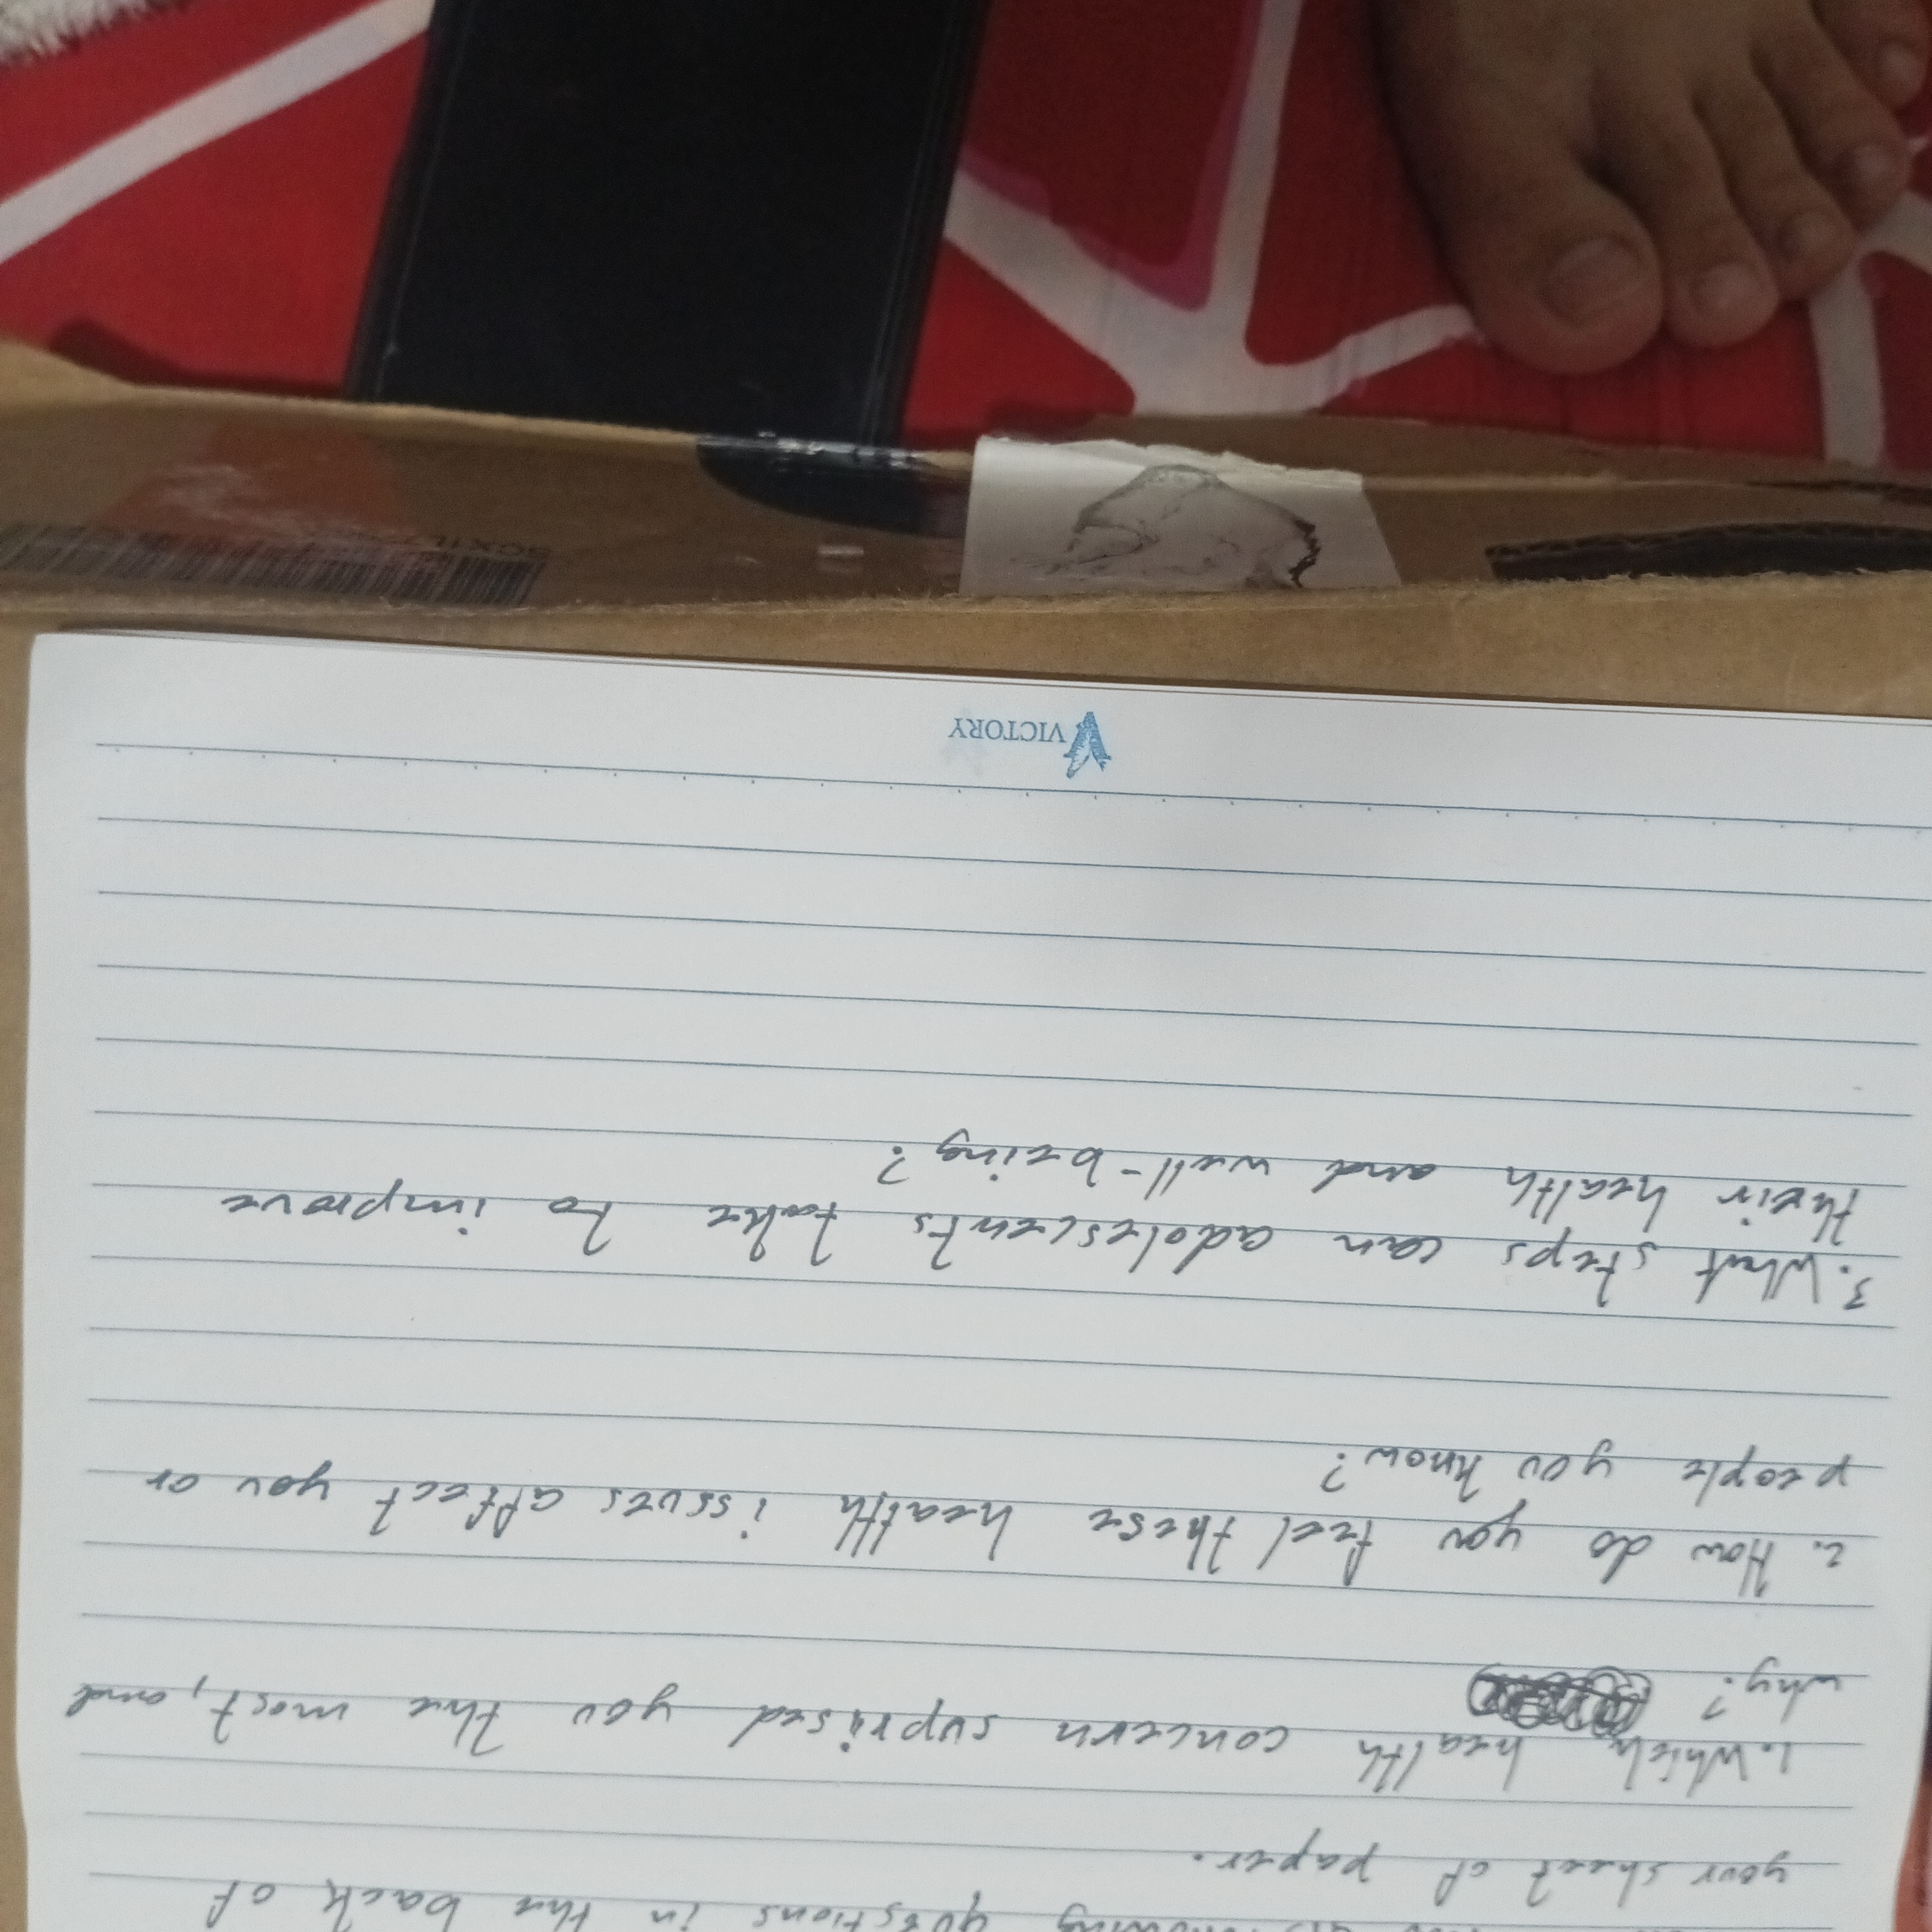 questions in the back of
your sheet of paper.
1. Which health concern suprised you the most, and
why?
2. How do you feel these health issues affect you or
people you know?
3. What steps can adolescents take to improve
their health and well-being?
VICTORY